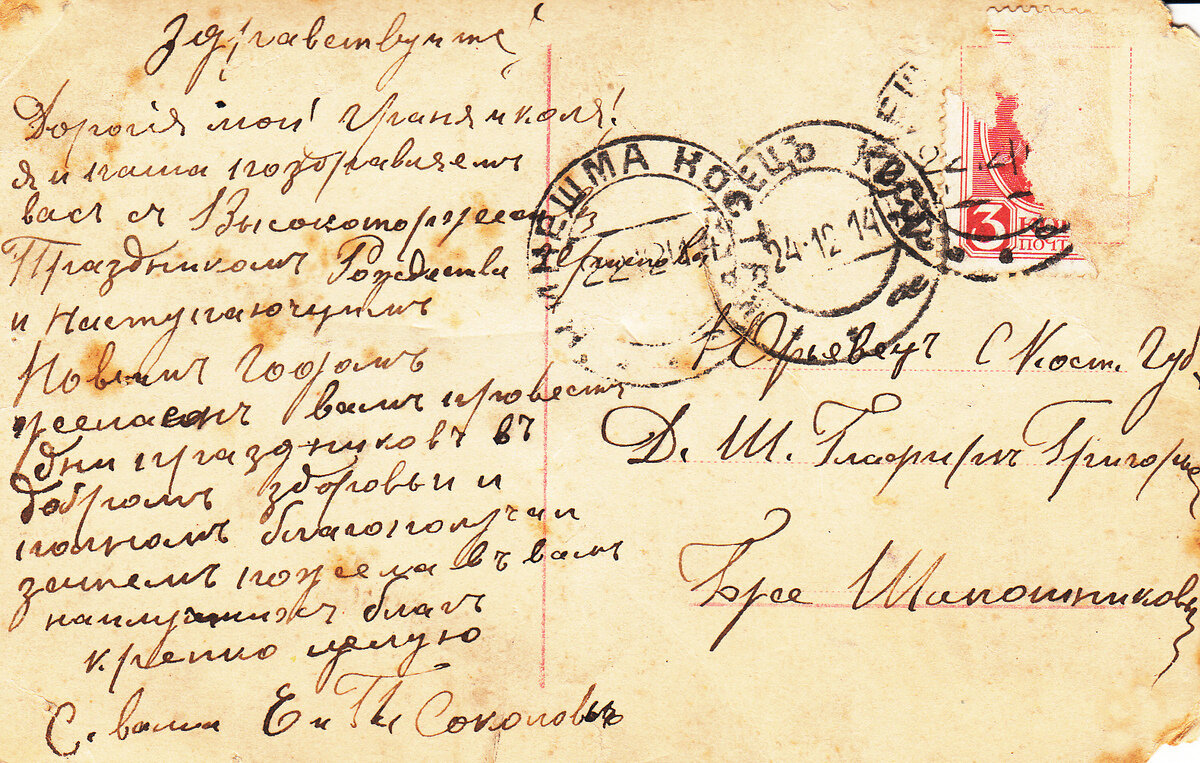 Здравствуйте
Дорогия мои Граня и Коля!
я и паша поздравляем
вас с Высокоторжеcтв
Праздником Рождества Христова
и Наступаючим
Новым Годомъ
желаем вамъ провести
дни праздниковъ въ
добром здоровьи и
полномъ благополучии
затемъ пожелаем вамъ
наилучших благъ
крепко целую
С. вами Е и П Соколовы
КИНЕШМА КО
22 12 14
ЮРЬЕВЕЦЪ КОСТР.
24-12-14
3
КОП
ПОЧТ
Юрьевецъ С Кост. Губ.
Д. Ш. Глафире Григорье
Ея Шапошниковой